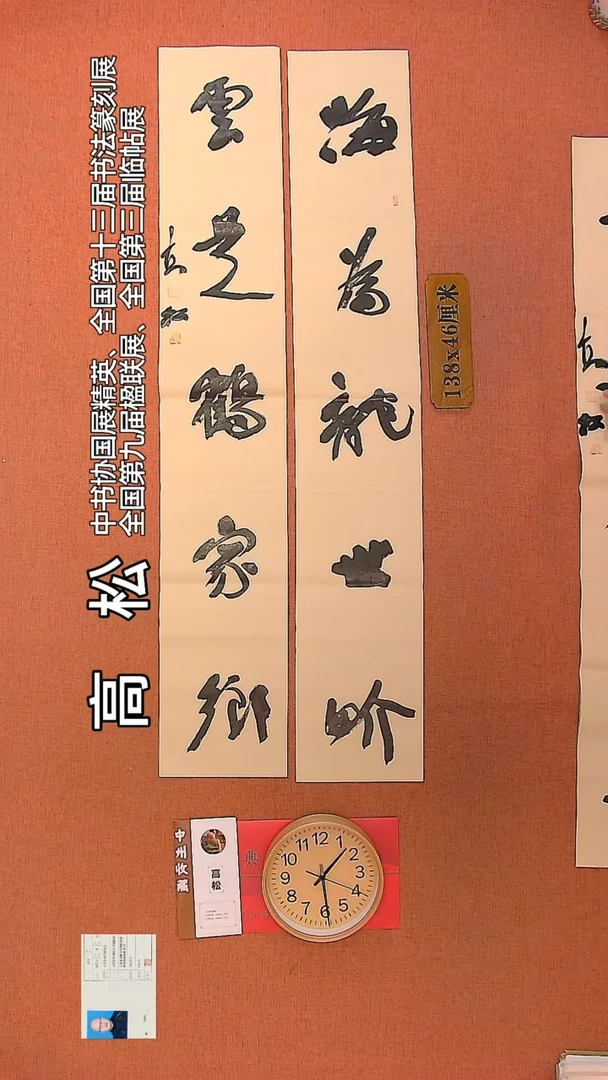 高松
中书协国展精英、全国第十三届书法篆刻展
全国第九届楹联展、全国第三届临帖展
海为龙世界
云是鶴家鄉
138x46厘米
高松
典
12
1
2
3
4
5
6
7
8
9
10
11